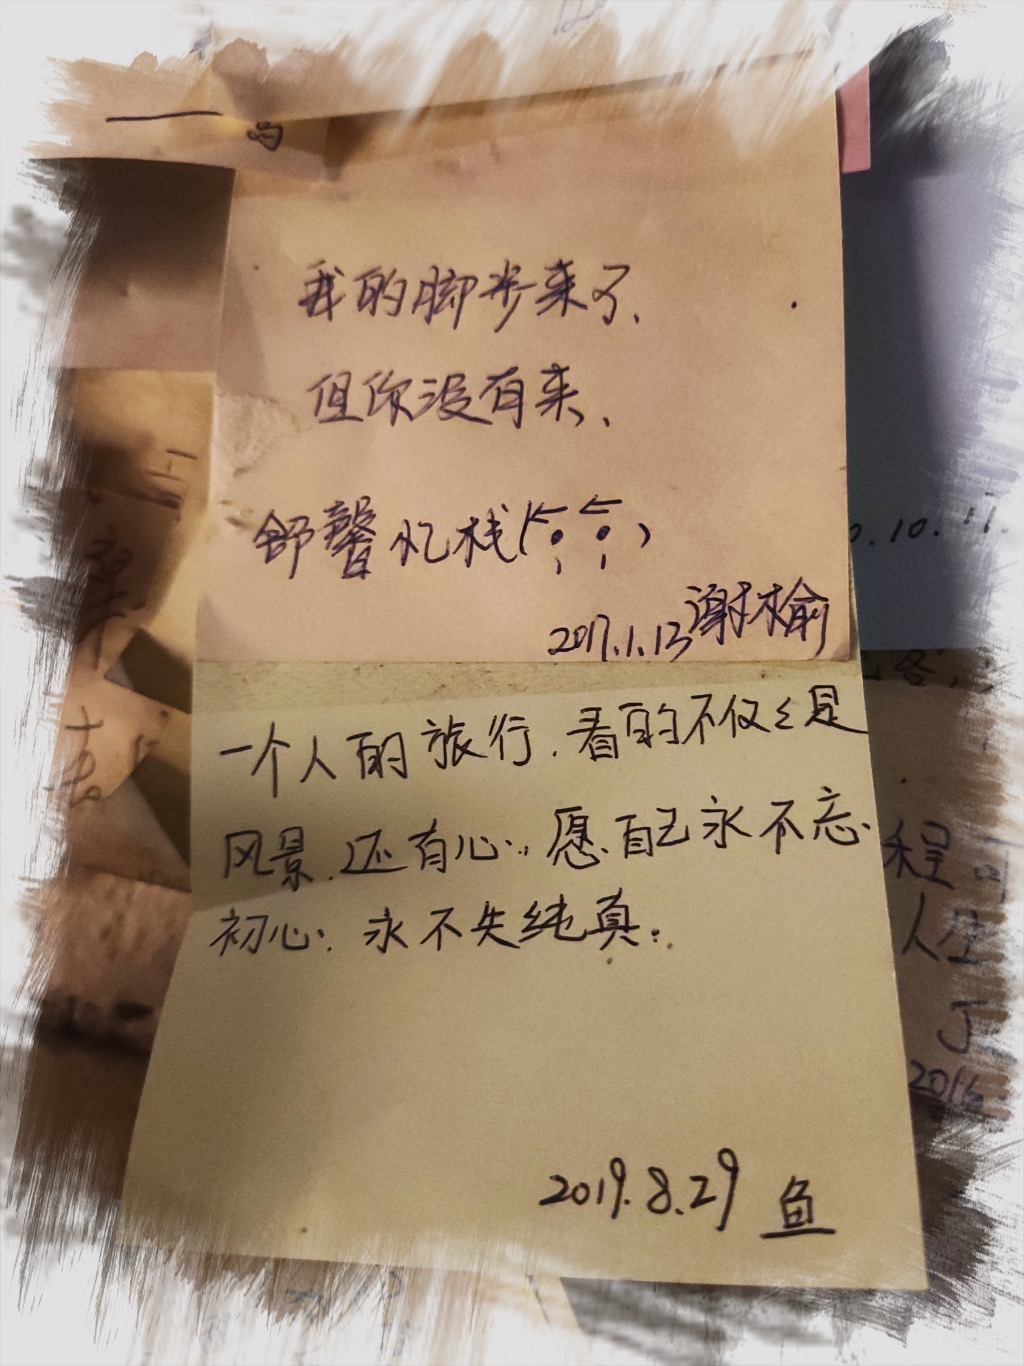 我的脚步来了、
但你没有来、
舒馨忆栈
2017.1.13 谢榆
一个人的旅行.看的不仅仅是
风景.还有心..愿自己永不忘
初心.永不失纯真.
2019.8.29 鱼
.10.11.
程
人生
2016.